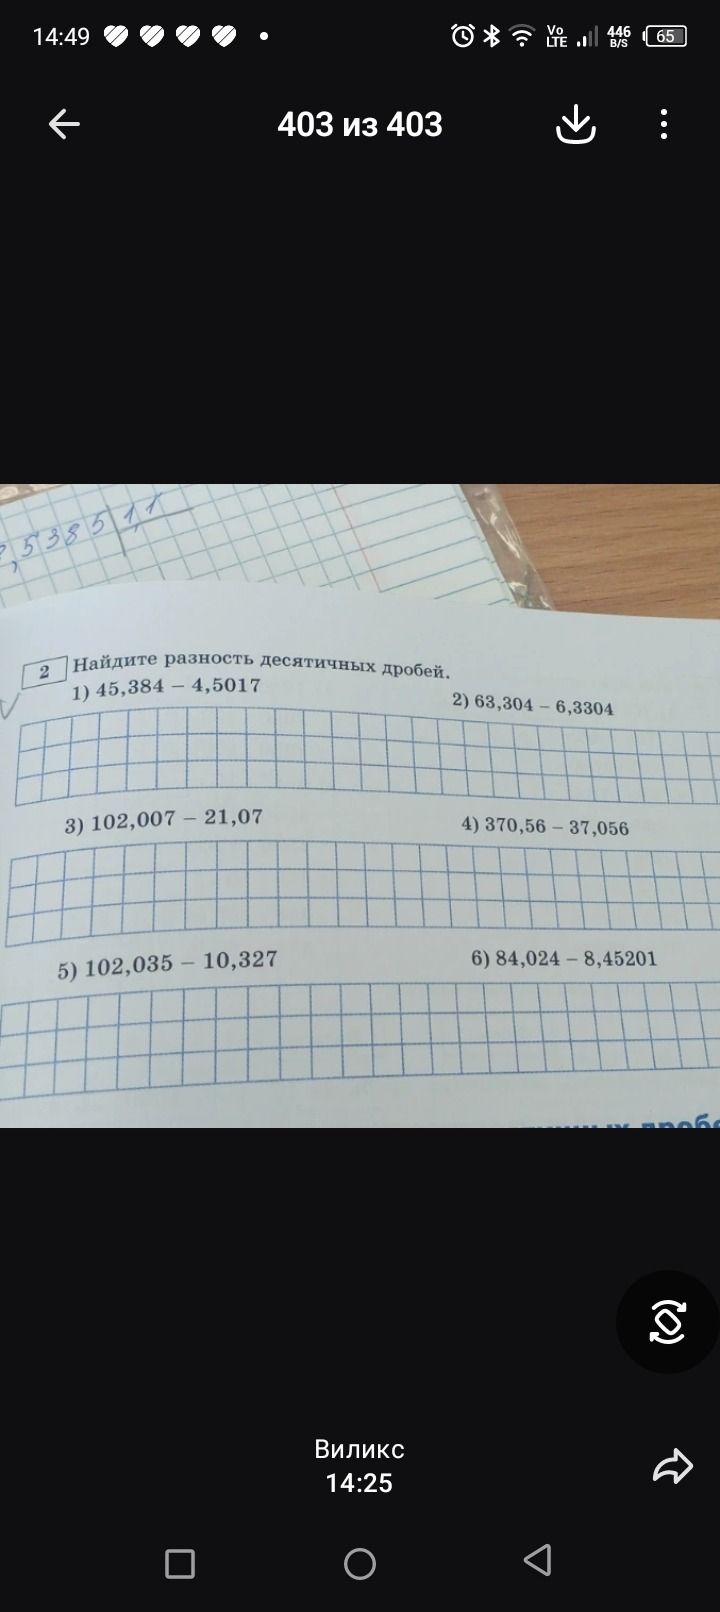 14:49
Vo LTE
446 B/S
65
403 из 403
,5385 1,1
2 Найдите разность десятичных дробей.
1) 45,384 – 4,5017
2) 63,304 – 6,3304
3) 102,007 – 21,07
4) 370,56 – 37,056
5) 102,035 – 10,327
6) 84,024 – 8,45201
Виликс
14:25